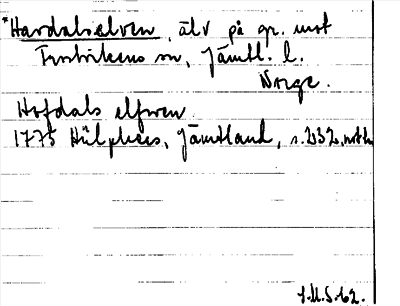 *Havdalselven, älv på gr. mot
Frostvikens sn, Jämtl. l.
Norge.
Hofdals elfwen
1775 Hülphers, Jämtland, s. 232, not h